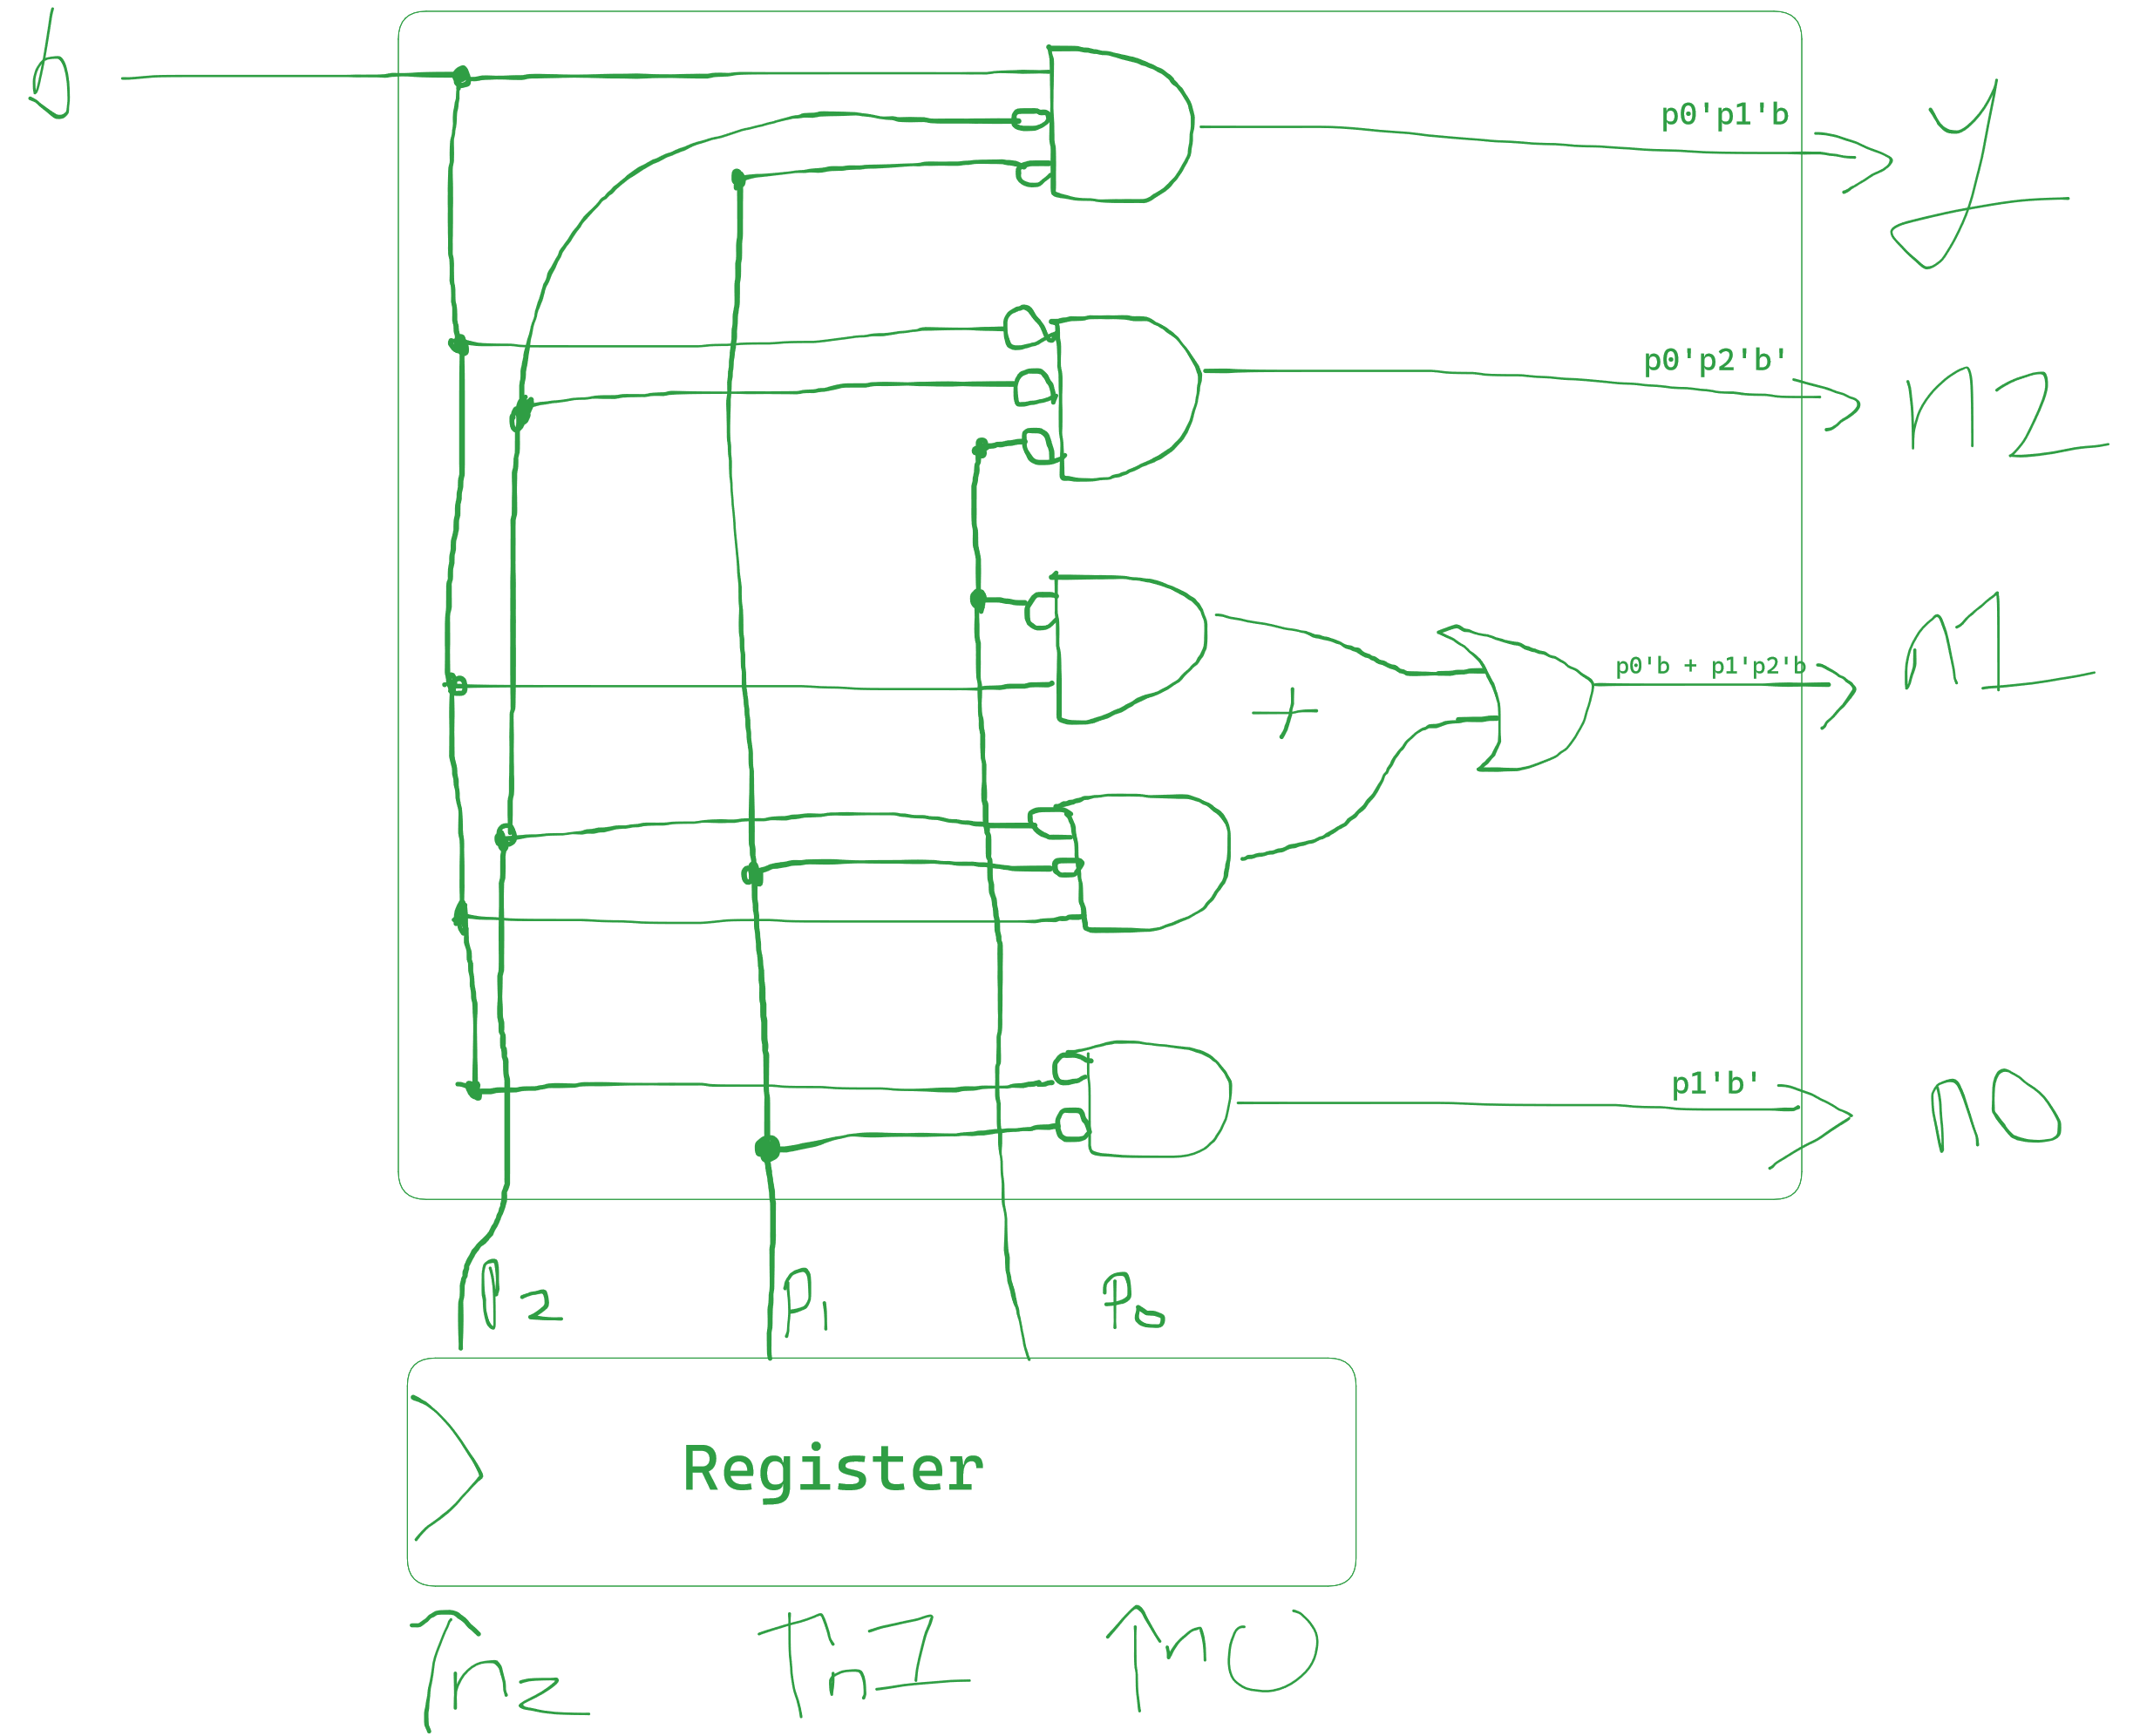 b
p0'p1'b
y
p0'p2'b'
n2
p0'b + p1'p2'b
n1
+
p1'b'
n0
p2 p1 p0
Register
n2 n1 n0